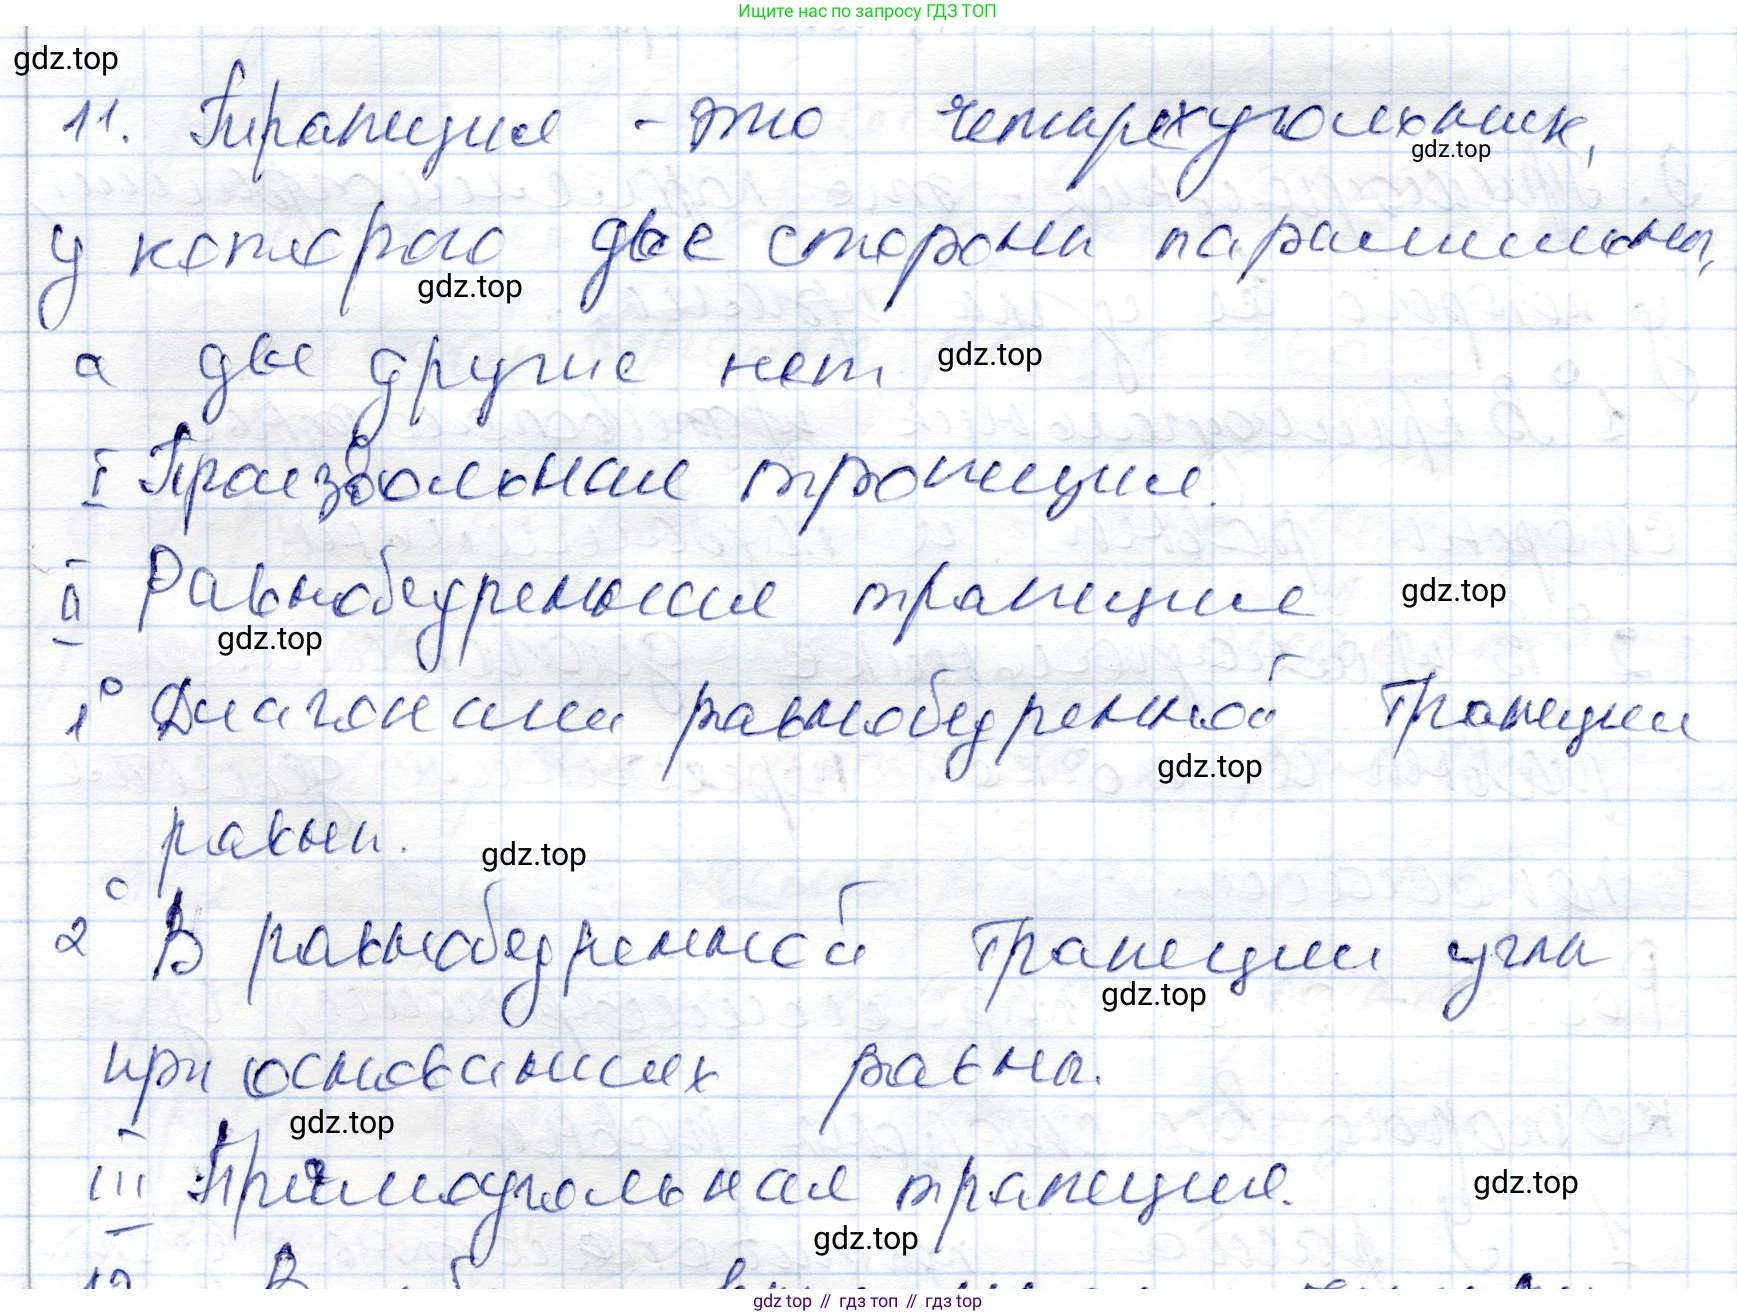 Ищите нас по запросу ГДЗ ТОП
gdz.top
11. Трапеция - это четырехугольник,
gdz.top
у которого две стороны параллельны,
gdz.top
а две другие нет
gdz.top
I Произвольная трапеция.
II Равнобедренная трапеция
gdz.top
gdz.top
1° Диагонали равнобедренной трапеции
gdz.top
равны.
gdz.top
2° В равнобедренной трапеции углы
gdz.top
при основаниях равны.
gdz.top
III Прямоугольная трапеция.
gdz.top
gdz.top
gdz top // гдз топ // гдз top